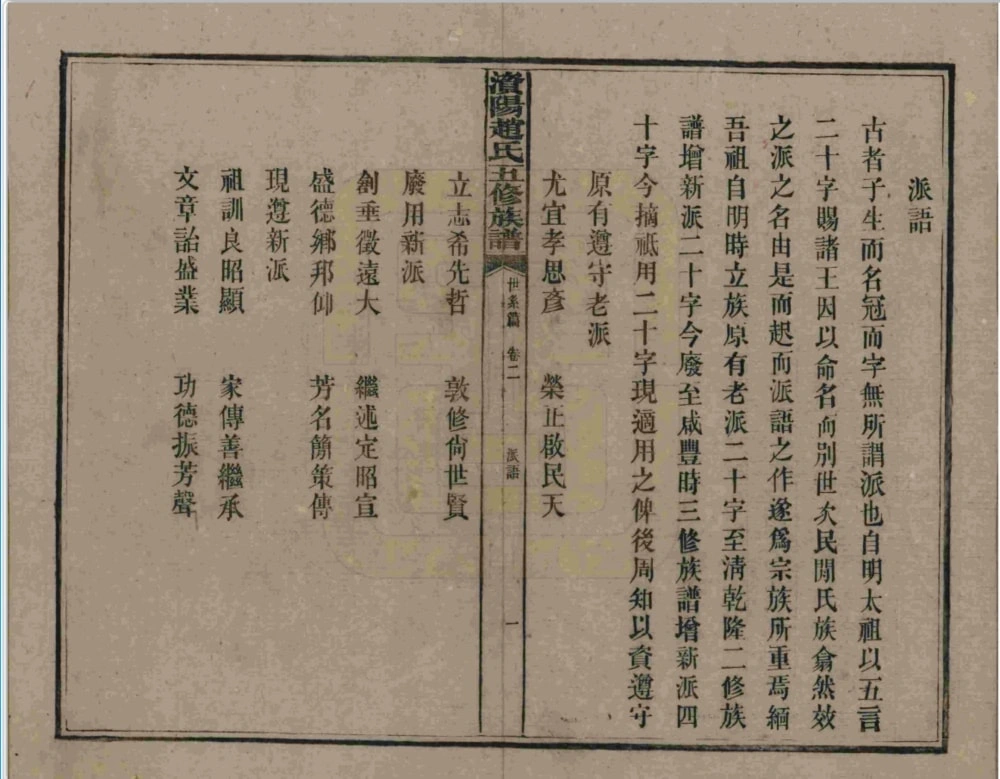 派語
古者子生而名冠而字無所謂派也自明太祖以五言
二十字賜諸王因以命名而別世次民間氏族翕然效
之派之名由是而起而派語之作遂爲宗族所重焉緬
吾祖自明時立族原有老派二十字至清乾隆二修族
譜增新派二十字今廢至咸豐時三修族譜增新派四
十字今摘祗用二十字現適用之俾後周知以資遵守
原有遵守老派
尤宜孝思彥　榮正啟民天
濱陽趙氏五修族譜　世系篇　卷二　派語　一
立志希先哲　敦修尙世賢
廢用新派
創垂徵遠大　繼述定昭宣
盛德鄉邦仰　芳名簡策傳
現遵新派
祖訓良昭顯　家傳善繼承
文章詒盛業　功德振芳聲